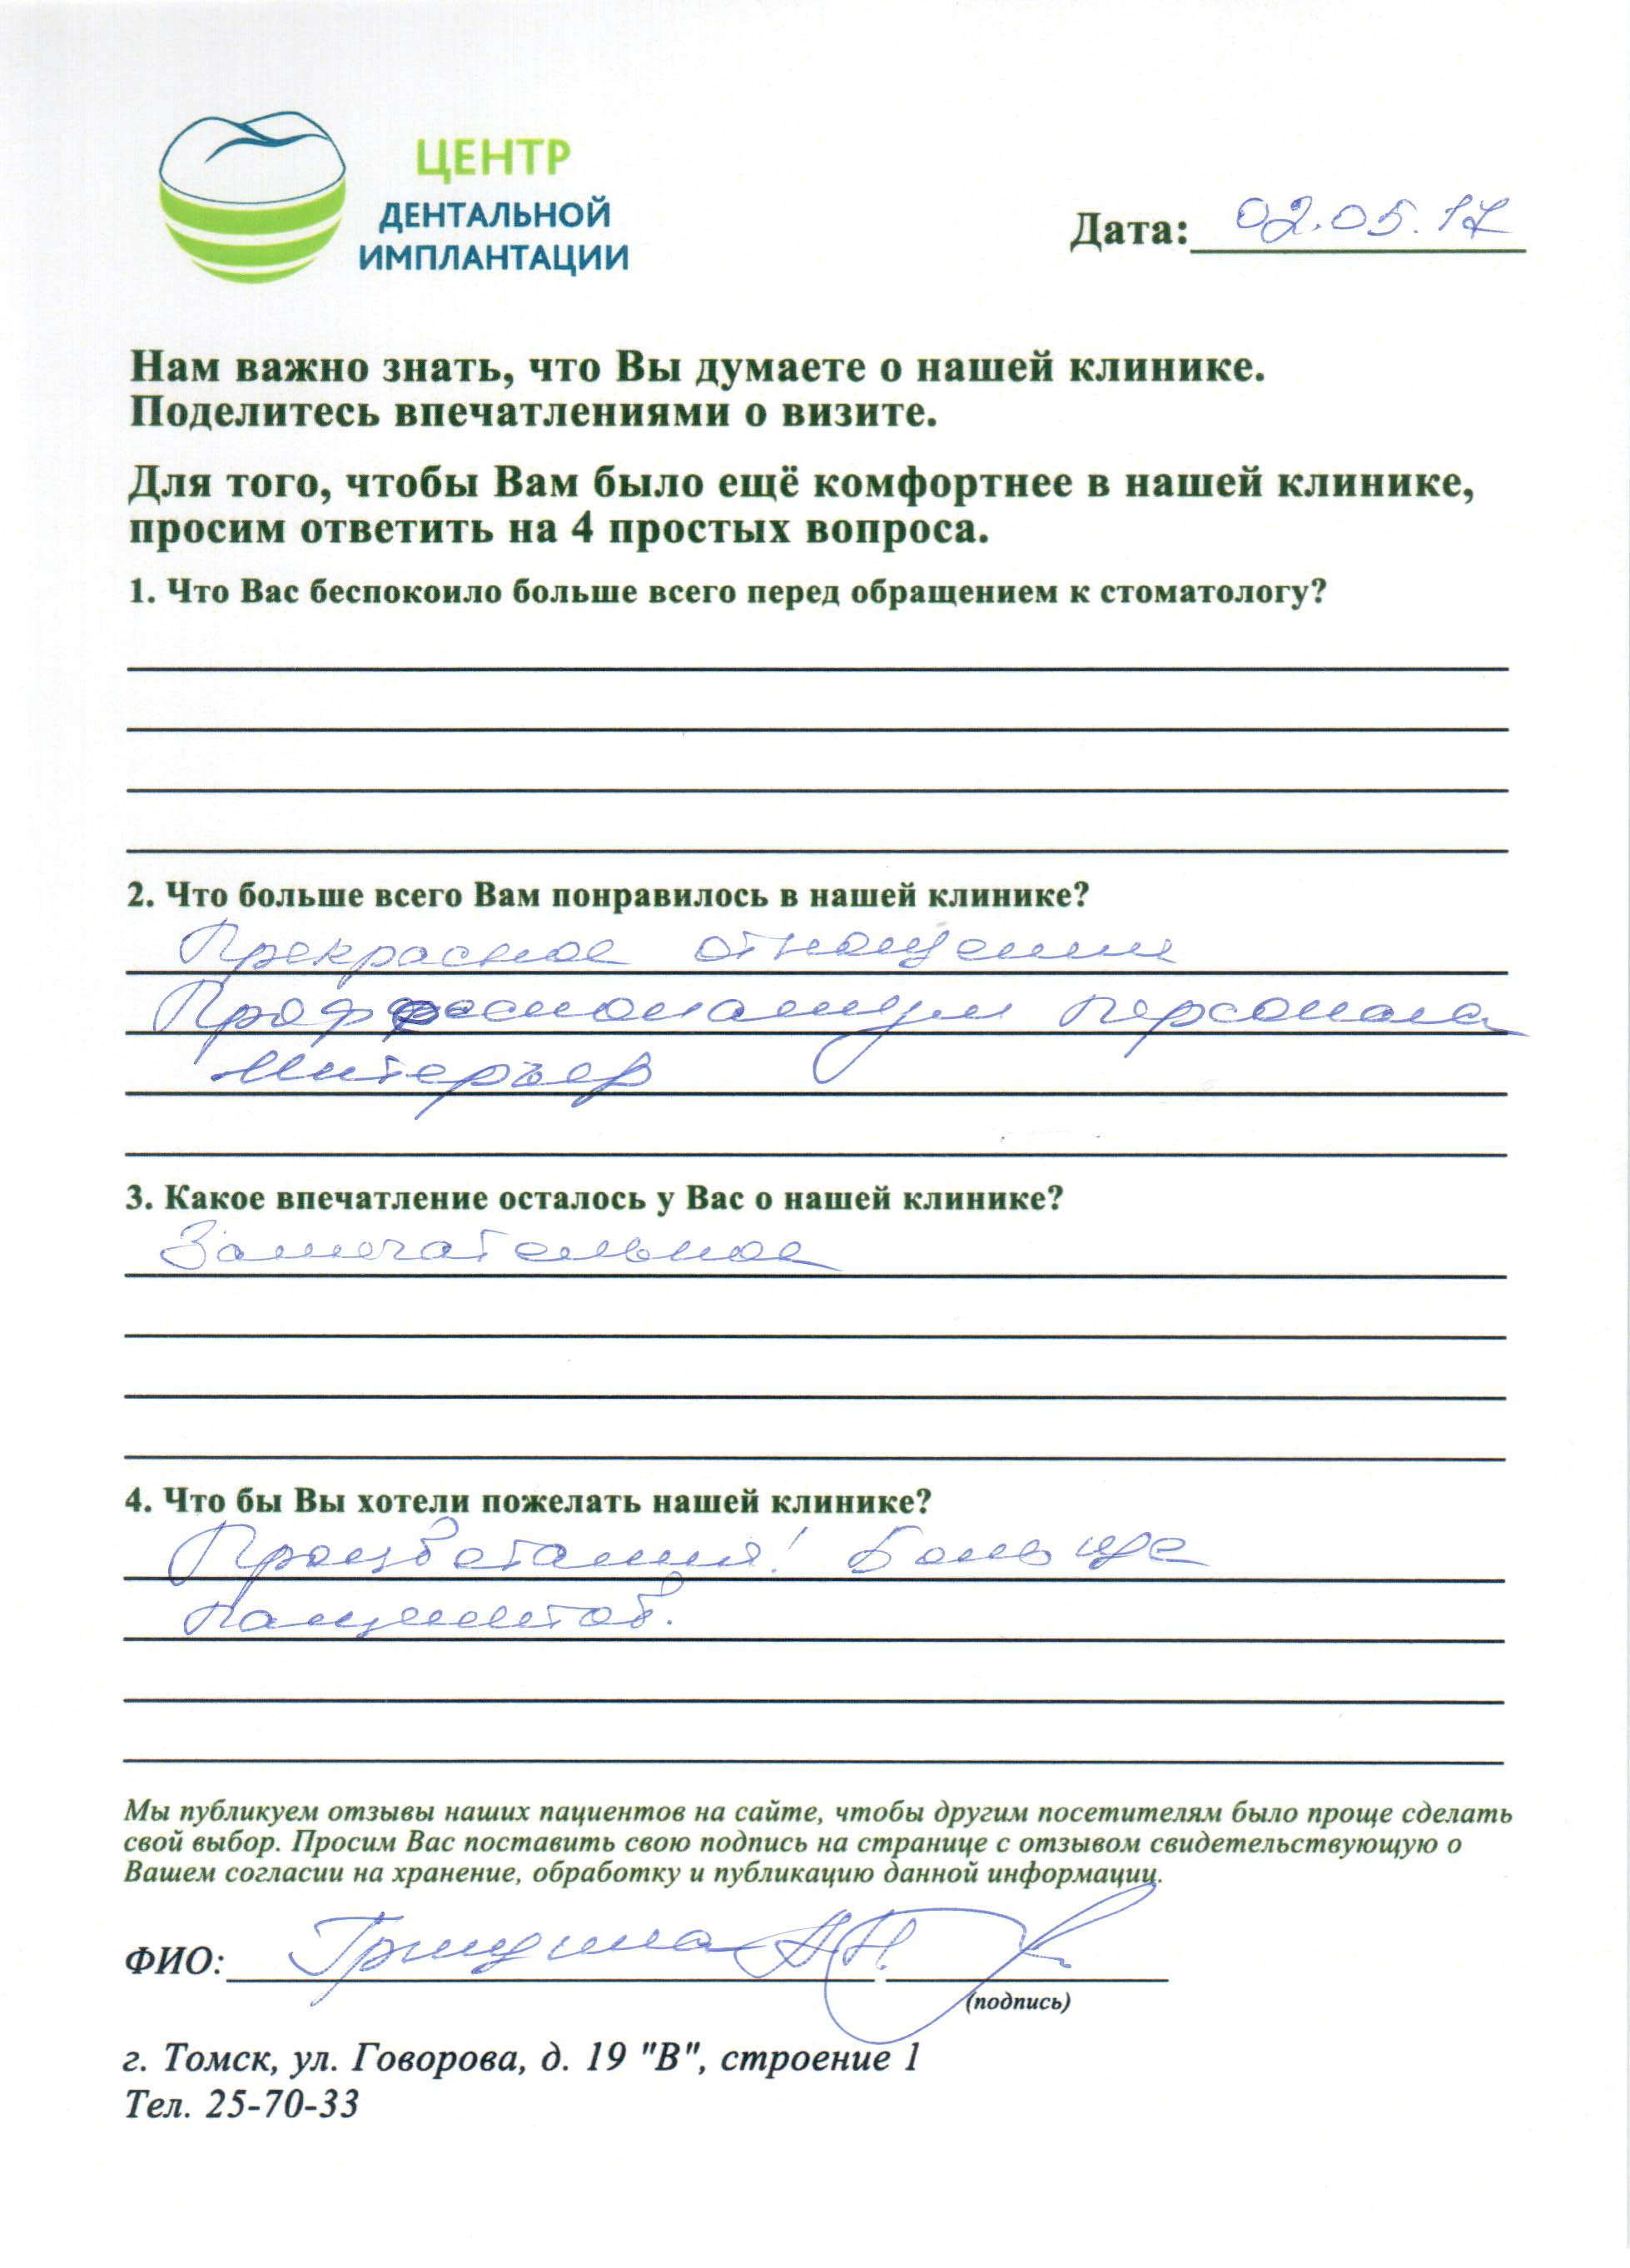 ЦЕНТР
ДЕНТАЛЬНОЙ
ИМПЛАНТАЦИИ
Дата: 02.05.17
Нам важно знать, что Вы думаете о нашей клинике.
Поделитесь впечатлениями о визите.
Для того, чтобы Вам было ещё комфортнее в нашей клинике,
просим ответить на 4 простых вопроса.
1. Что Вас беспокоило больше всего перед обращением к стоматологу?
2. Что больше всего Вам понравилось в нашей клинике?
Прекрасное отношение
Профессионализм персонала
Интерьер
3. Какое впечатление осталось у Вас о нашей клинике?
Замечательное
4. Что бы Вы хотели пожелать нашей клинике?
Процветания! Больше
пациентов.
Мы публикуем отзывы наших пациентов на сайте, чтобы другим посетителям было проще сделать
свой выбор. Просим Вас поставить свою подпись на странице с отзывом свидетельствующую о
Вашем согласии на хранение, обработку и публикацию данной информации.
ФИО: А.Н.
(подпись)
г. Томск, ул. Говорова, д. 19 "В", строение 1
Тел. 25-70-33